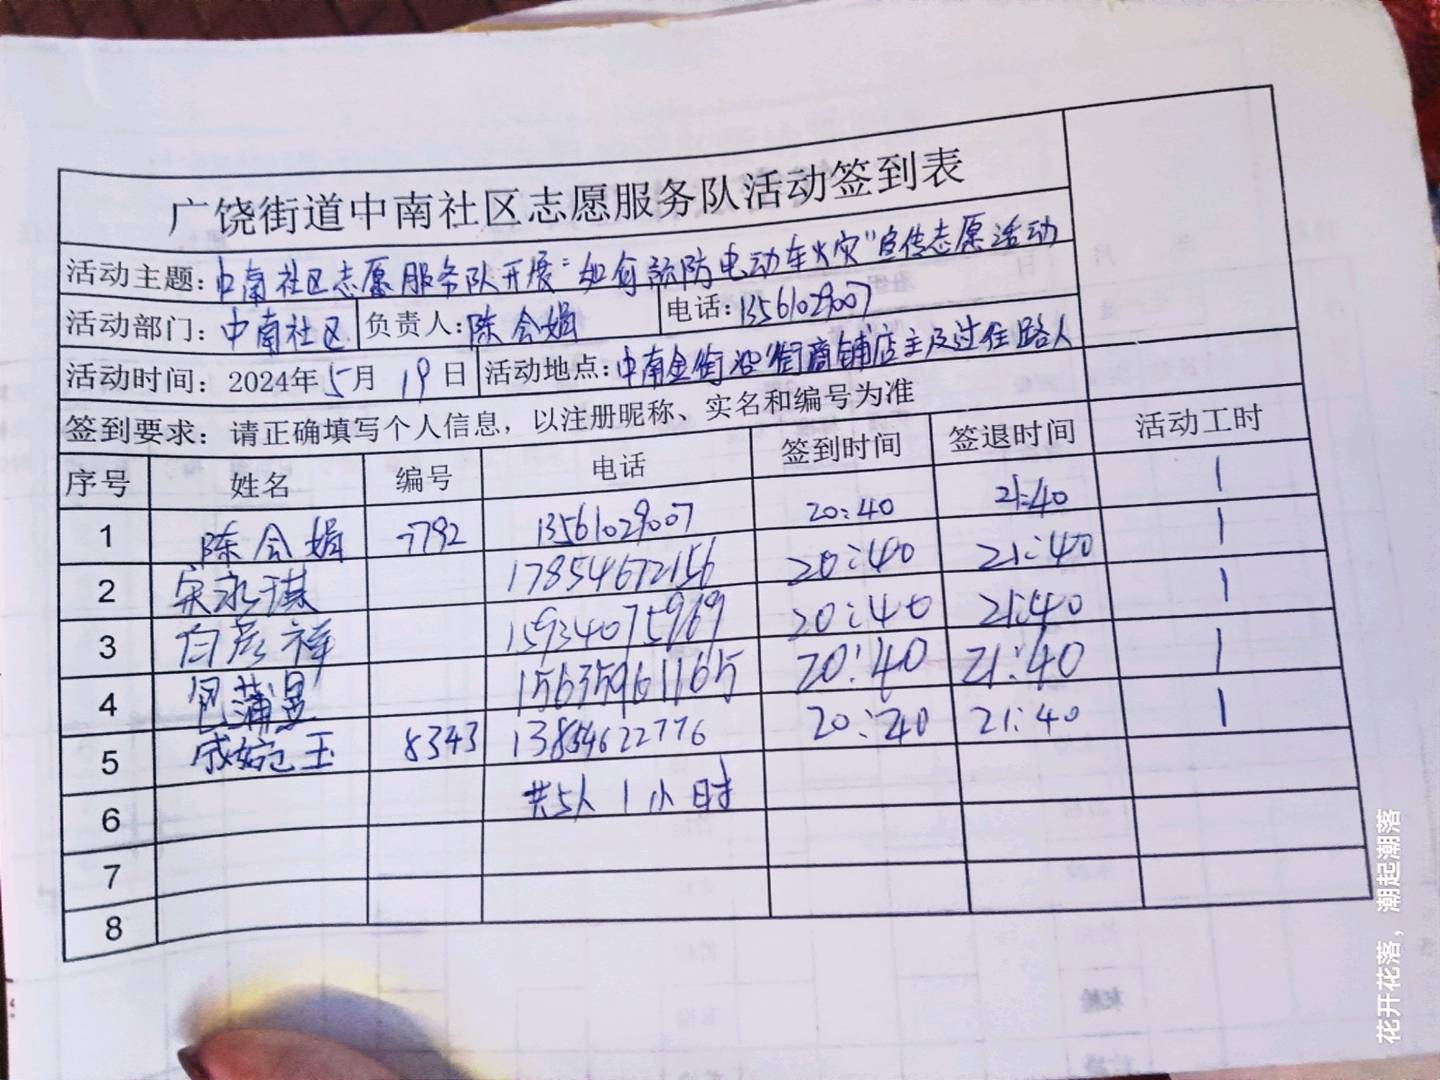 广饶街道中南社区志愿服务队活动签到表
活动主题：中南社区志愿服务队开展"如何预防电动车火灾"宣传志愿活动
活动部门：中南社区 负责人：陈会娟 电话：13561029007
活动时间：2024年5月19日 活动地点：中南金街沿街商铺店主及过往路人
签到要求：请正确填写个人信息，以注册昵称、实名和编号为准
序号 姓名 编号 电话 签到时间 签退时间 活动工时
1 陈会娟 7792 13561029007 20:40 21:40 1
2 宋永琪 17854672156 20:40 21:40 1
3 白彦祥 15934075969 20:40 21:40 1
4 15635961165 20:40 21:40 1
5 成婉玉 8343 13854622776 20:40 21:40 1
6 共5人 1小时
7
8
花开花落，潮起潮落